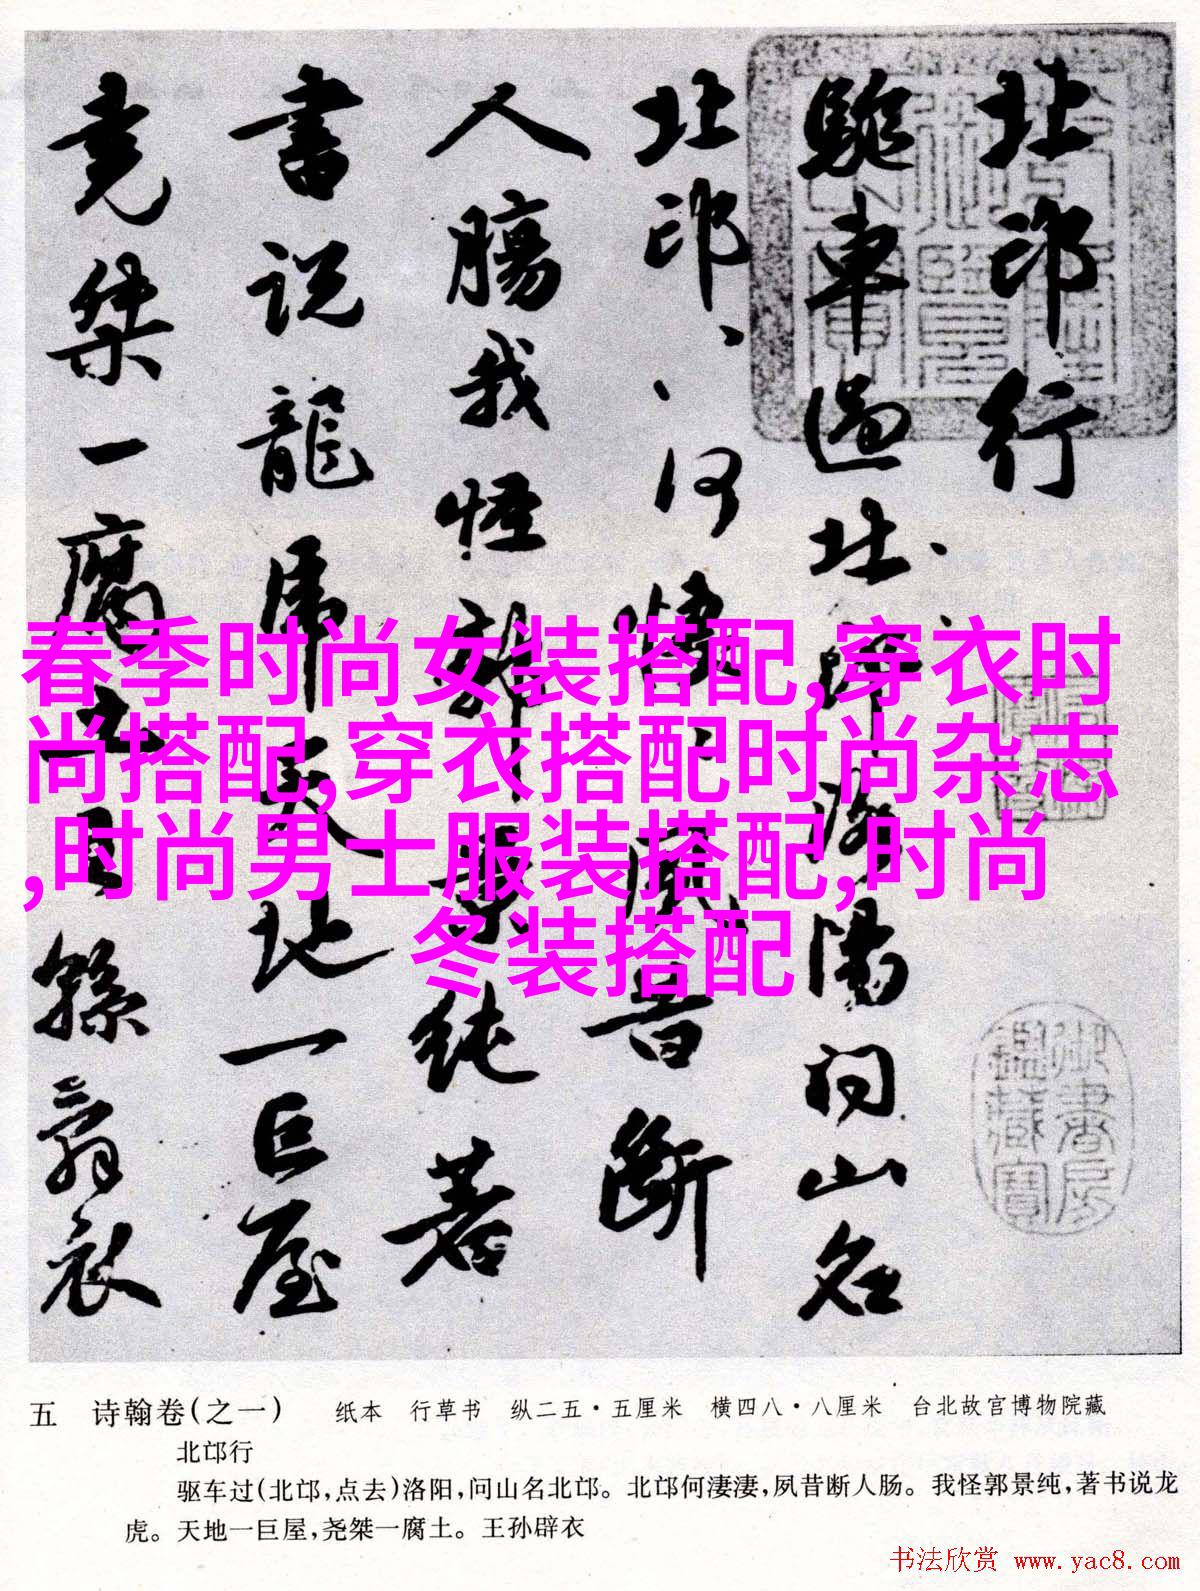 北邙行
驱車過北邙洛陽问山名
北邙、、何悽、夙昔斷
人腸我怪郭景纯著
書说龍虎天地一巨屋
尭桀一腐土王孫辟衣
春季时尚女装搭配,穿衣时
尚搭配,穿衣搭配时尚杂志
,时尚男士服装搭配,时尚
冬装搭配
御書房鑑藏寶
五 诗翰卷(之一) 纸本 行草书 纵二五·五厘米 横四八·八厘米 台北故宫博物院藏
北邙行
驱车过(北邙,点去)洛阳,问山名北邙。北邙何凄凄,夙昔断人肠。我怪郭景纯,著书说龙
虎。天地一巨屋,尧桀一腐土。王孙辟衣
书法欣赏 www.yac8.com